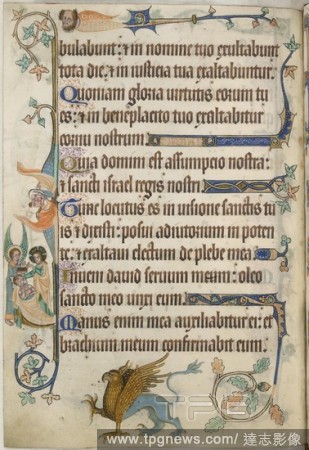 bulabunt: & in nomine tuo exultabunt
tota die: & in iusticia tua exaltabuntur.
Quoniam gloria uirtutis eorum tu
es: & in beneplacito tuo exaltabitur
cornu nostrum.
Quia domini est assumpcio nostra:
& sancti israel regis nostri
Tunc locutus es in uisione sanctis tu
is & dixisti: posui adiutorium in poten
te: & exaltaui electum de plebe mea
Inueni dauid seruum meum: oleo
sancto meo unxi eum
Manus enim mea auxiliabitur ei: et
brachium meum confirmabit eum.
TPG
www.tpgnews.com/ 達志影像